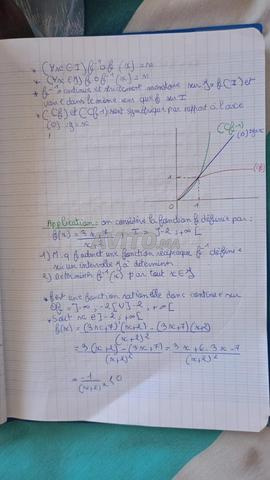 * (∀x ∈ I) f⁻¹ o f (x) = x
* (∀x ∈ J) f o f⁻¹ (x) = x
* f⁻¹ continue et strictement monotone sur J = f(I) et
varie dans le même sens que f sur I
* (Cf) et (Cf⁻¹) sont symétrique par rapport à l'axe
(Δ) : y = x
(Cf⁻¹)
(Δ) y=x
1
1
Application : on considère la fonction f définie par :
f(x) = 3x+7 / x+2 I = ]-2, +∞[
1) M.q f admet une fonction réciproque f⁻¹ définie
sur un intervalle J à déterminer
2) Déterminer f⁻¹(x) pour tout x ∈ J
* f est une fonction rationnelle donc continue sur
Df = ]-∞, -2[ ∪ ]-2, +∞[
* Soit x ∈ ]-2, +∞[
f(x) = (3x+7)'(x+2) - (3x+7)(x+2)' / (x+2)²
= 3(x+2) - (3x+7) / (x+2)² = 3x+6-3x-7 / (x+2)²
= -1 / (x+2)² < 0